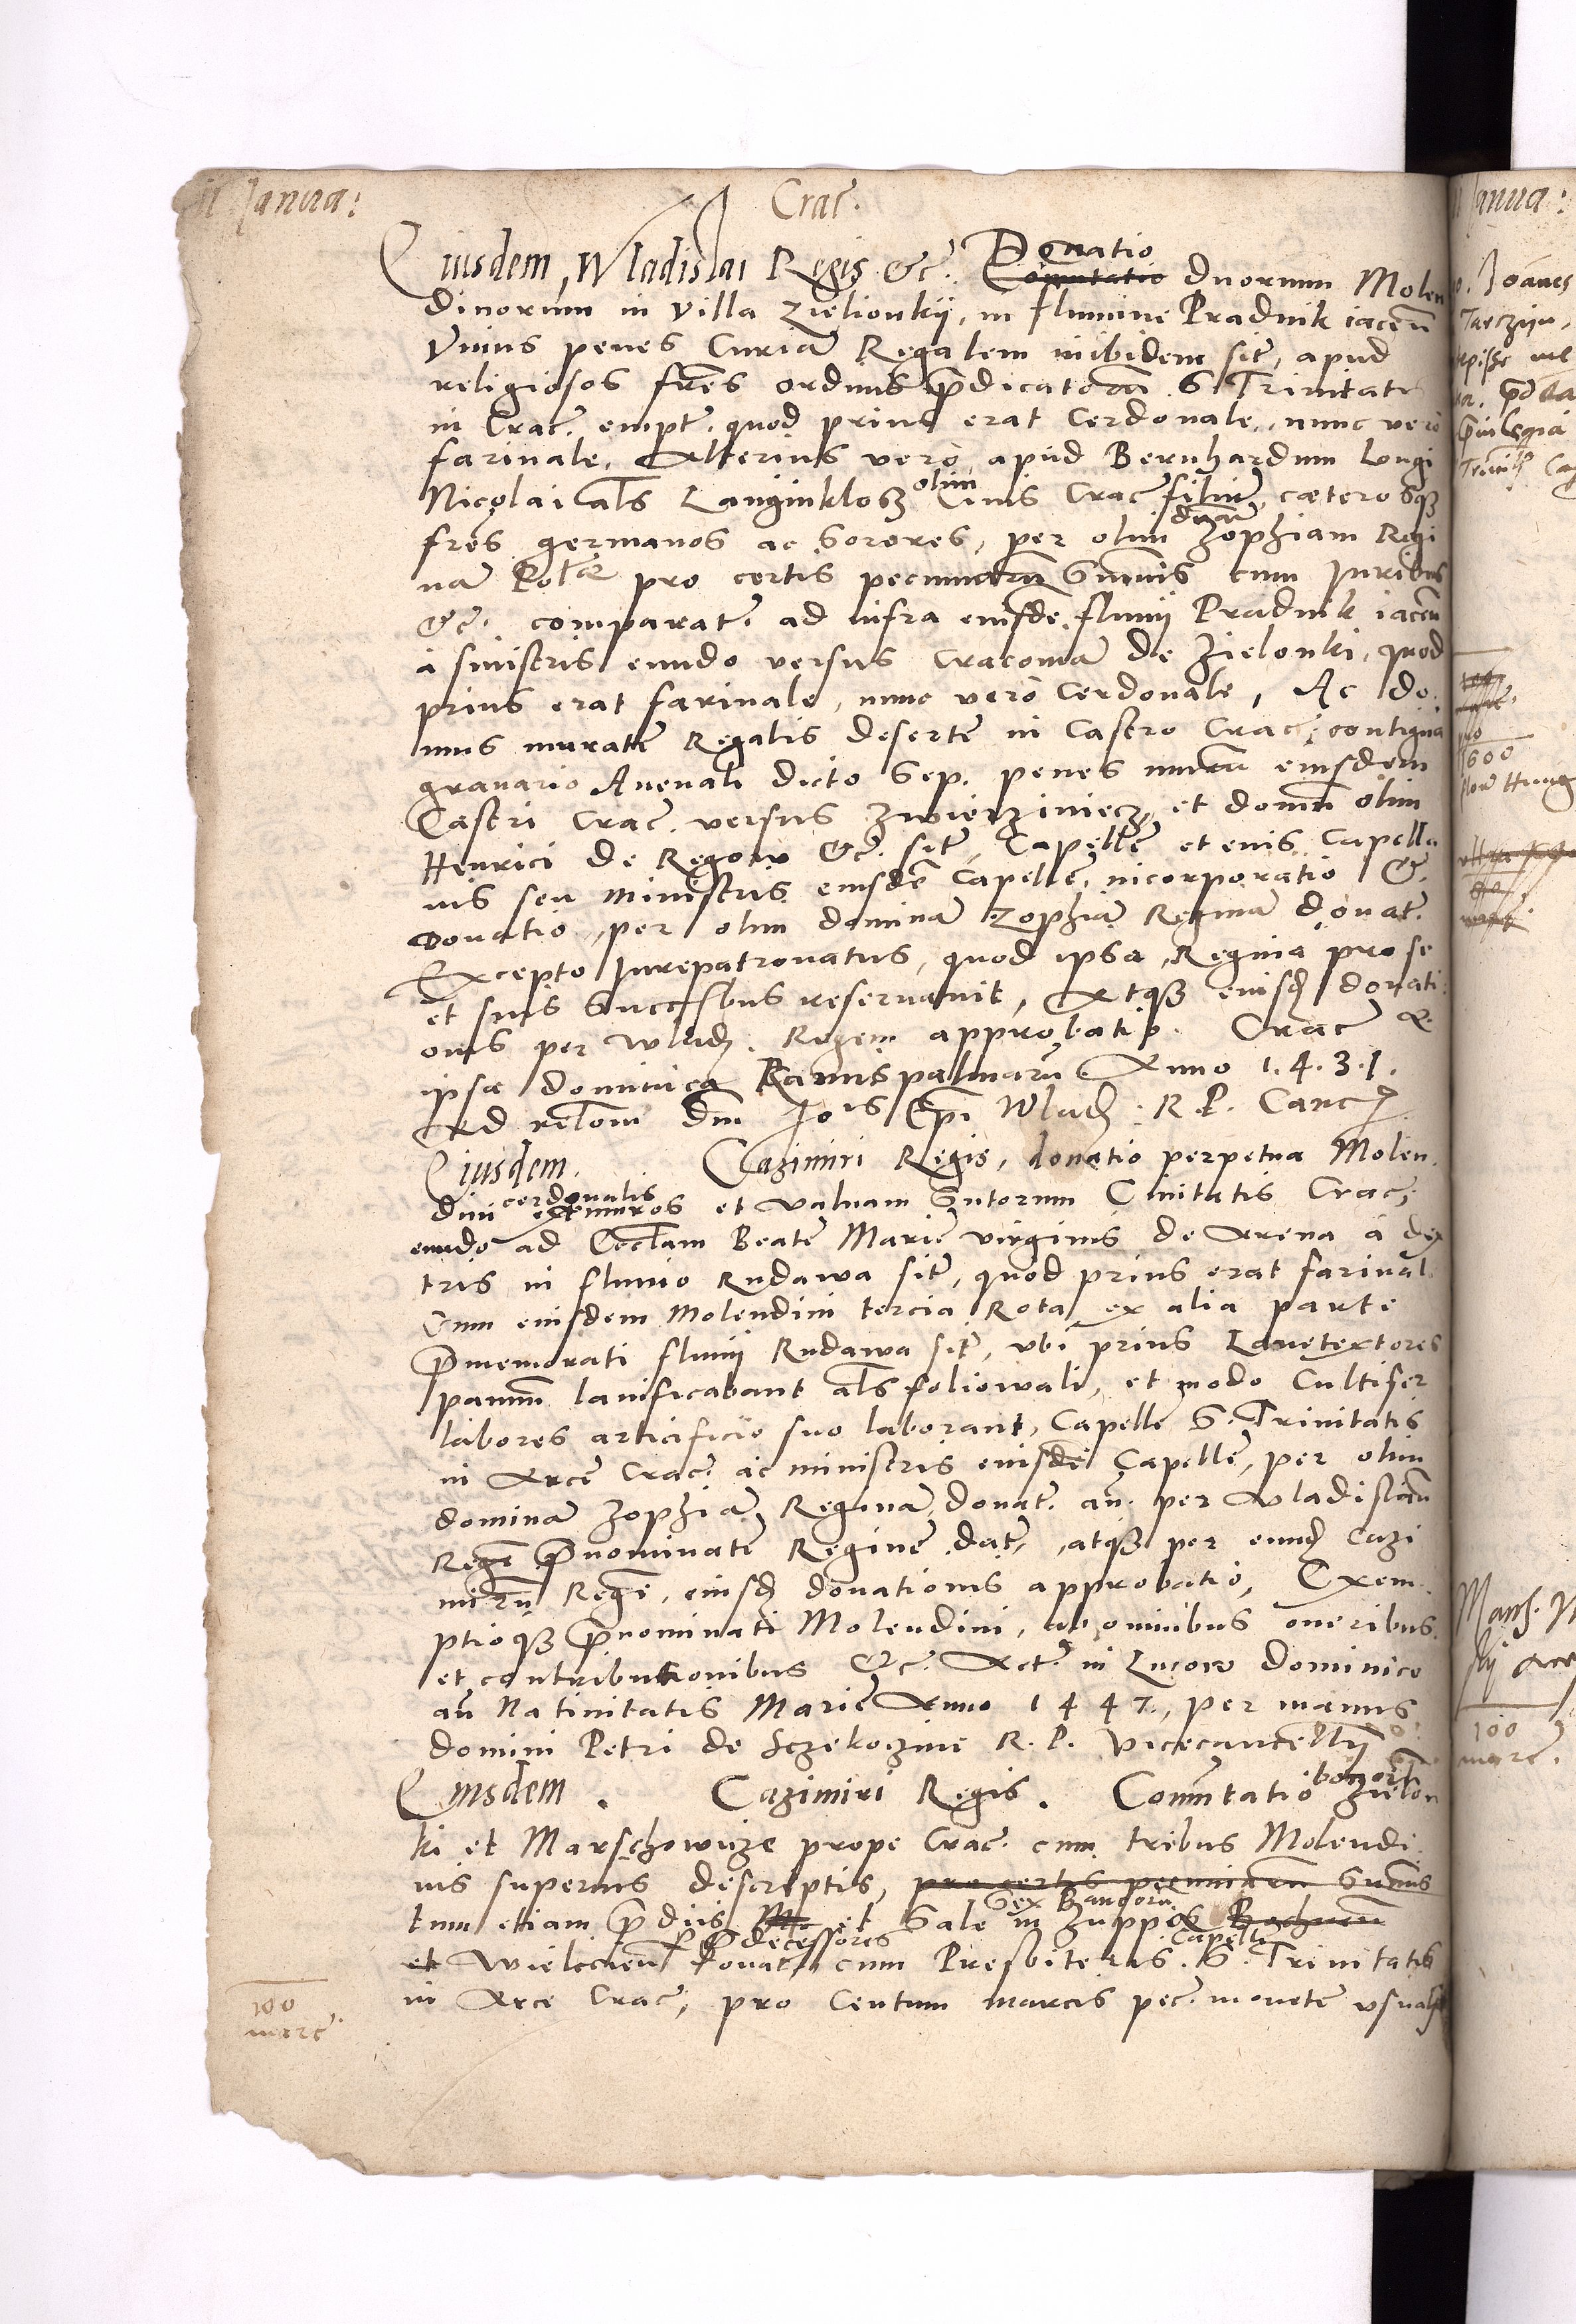 11 Janua:
Crac.
Eiusdem, Wladislai Regis &c. Donatio Comutatio duorum Molen
dinorum in villa Zielionkij, in flumine Pradnik iaceñ
Vnius penes Curiã Regalem inibidem sit., apud
religiosos frẽs ordinis p̃dicatorũ S. Trinitatis
in Crac. empt. quod prius erat Cerdonale, nunc verò
farinale, Alterius verò apud Bernhardum Longi
Nicolai als Langinklosz olim Ciuis Crac filiũ, cæterosqz
fres germanos ac Sorores, per olim dnam Zophiam Regi
nã Pol̃æ pro certis pecuniarũ Sum̃is cum Juribus
&c. comparat. ad infra eiusdẽ fluuij Pradnik iaceñ
à sinistris eundo versus Cracouiã de Zielonki, quod
prius erat farinale, nunc verò Cerdonale, Ac do
mus muratę Regalis desertę in Castro Crac, contigua
granario Auenali dicto Sep. penes murũ eiusdem
Castri Crac. versus Zwierziniecz, et domũ olim
Henrici de Regow &c. sit, Capellę et eius Capella
nis seu ministris eiusdẽ Capellę, incorporatio &
Donatio, per olim dominã Zophiã Reginã donat.
Excepto Jurepatronatus, quod ipsa Regina pro se
et suis Succ̃sbus reseruauit, Atqz eiusd donati
onis per Wlad. Regem approbatio. Crac &
ipsa dominica Ramispalmarũ. Anno 1.4.3.1.
Ad rel̃om dni Jois Ep̃i Wlad. R. P. Canc.
Eiusdem. Cazimiri Regis, donatio perpetua Molen
dini cerdonalis ex muros et valuam Sutorum Ciuitatis Crac,
eundo ad Eccl̃am Beatę Marię virginis de Arena à dex
tris in fluuio Rudawa sit, quod prius erat farinal
Cum eiusdem Molendini tercia Rota ex alia parte
p̃memorati fluuij Rudawa sit, vbi prius Lanętextores
pannũ lanificabant als foliowali, et modo Cultifer
labores artificio suo laborant, Capellę S. Trinitatis
in Arce Crac. ac ministris eiusdẽ Capellę, per olim
dominã Zophiã Reginã donat. añ. per Vladislaũ
Regẽ p̃nominatę Reginę dat, atqz per eund Cazi
mirũ Regẽ, eiusd donationis approbatio, Exem
ptioqz p̃nominati Molendini, ab omnibus oneribus
et contributionibus &c. Act. in Lucow dominico
añ Natiuitatis Marię Anno 1447, per manus
domini Petri de Sczekoczine R. P. Vicecancellĩj
Eiusdem. Cazimiri Regis. Comm̃tatio bonorũ Zielon
ki et Marschowicze prope Crac. cum tribus Molendi
nis superius descriptis, pro certis pecuniarũ Sum̃is
tum etiam p̃dijs et Sale Sex Bancorũ in Zuppos Bochneñ
et Wielicieñ p̱ p̃decessores donat, cum Presbiteris Capellę S. Trinitatis
in Arce Crac, pro Centum marcis pec. monetę vsual
100
marc.
Janua:
Joanes
Tarczyn,
600
flor Hung
100
marc.